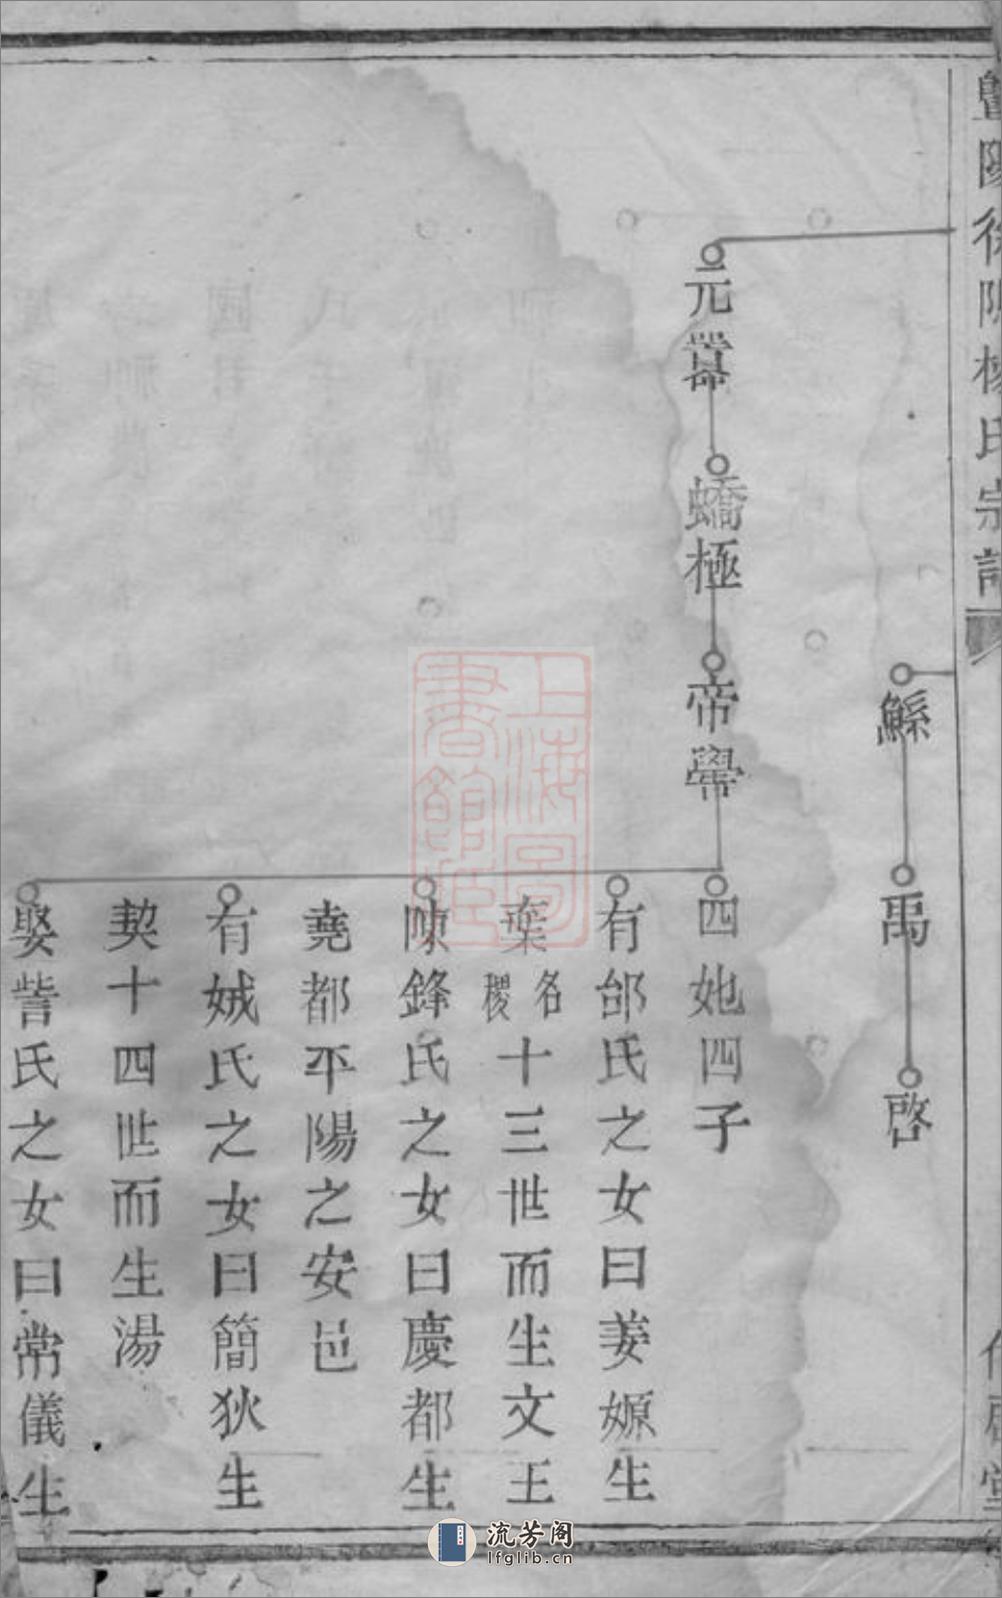 暨陽徐
楊氏宗譜
鯀
禹
啓
元囂
蟜極
帝嚳
四妃四子
有邰氏之女曰姜嫄生
棄名稷十三世而生文王
陳鋒氏之女曰慶都生
堯都平陽之安邑
有娀氏之女曰簡狄生
契十四世而生湯
娶訾氏之女曰常儀生
上海圖書館藏
流芳阁
lfglib.cn